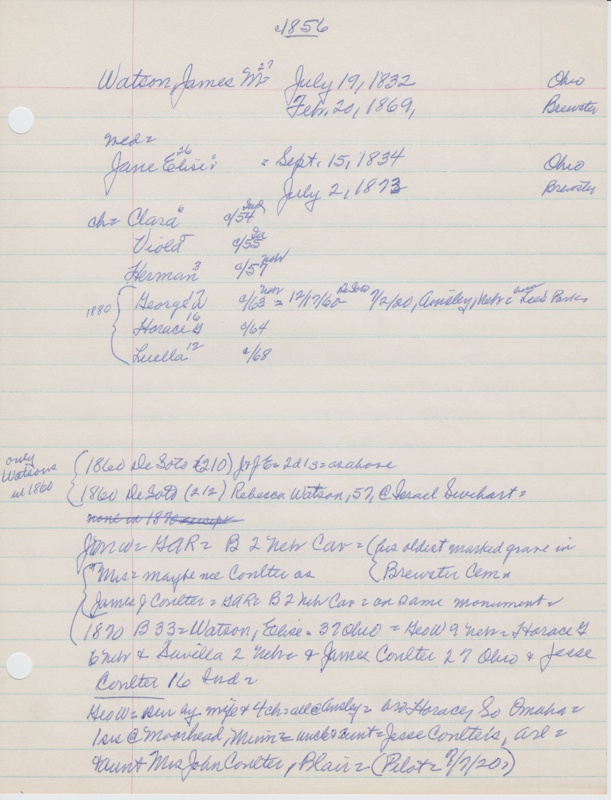 1856
Watson, James M 27 July 19, 1832 Ohio
Feb. 20, 1869, Brewster
med =
Jane Elise 26 = Sept. 15, 1834 Ohio
July 2, 1873 Brewster
ch = Clara 6 c/54 Ind
Viola 5 c/55 Ia
Herman 3 c/57 Nebr
1880 { George W 17 c/63 Nebr = 12/17/60 DeSoto 7/2/20, Ansley, Nebr =
Horace G 16 c/64
Luella 12 c/68
only Watsons in 1860
1860 DeSoto (210) J & JE = 2 d 1 s = as above
1860 DeSoto (212) Rebecca Watson, 57, @ Israel Swihart =
none in 1870 except
Jim W = GAR = B 2 Nebr Cav = (his oldest marked grave in Brewster Cem =
Mrs = maybe nee Coulter as
James J Coulter = GAR = B 2 Nebr Cav = on same monument =
1870 B 33 = Watson, Elise = 37 Ohio = Geo W 9 Nebr = Horace G
6 Nebr & Luvilla 2 Nebr = & James Coulter 27 Ohio & Jesse
Coulter 16 Ind =
Geo W = sur by wife & 4 ch = all @ Ansley = bro Horace, So Omaha =
1 sis @ Moorhead, Minn = uncle & aunt = Jesse Coulters, Arl =
& aunt Mrs John Coulter, Blair = (Pilot = 7/7/20)